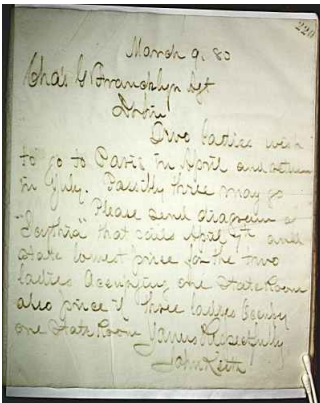 220
March 9. 80
Chas G Francklyn Agt
Two ladies wish
to go to Paris in April and return
in July. Possibly three may go
Please send diagram of
"Scythia" that sails April 7th and
state lowest price for the two
ladies Occupying one State Room
also price if three ladies Occupy
one State Room Yours Respectfully
John Keith